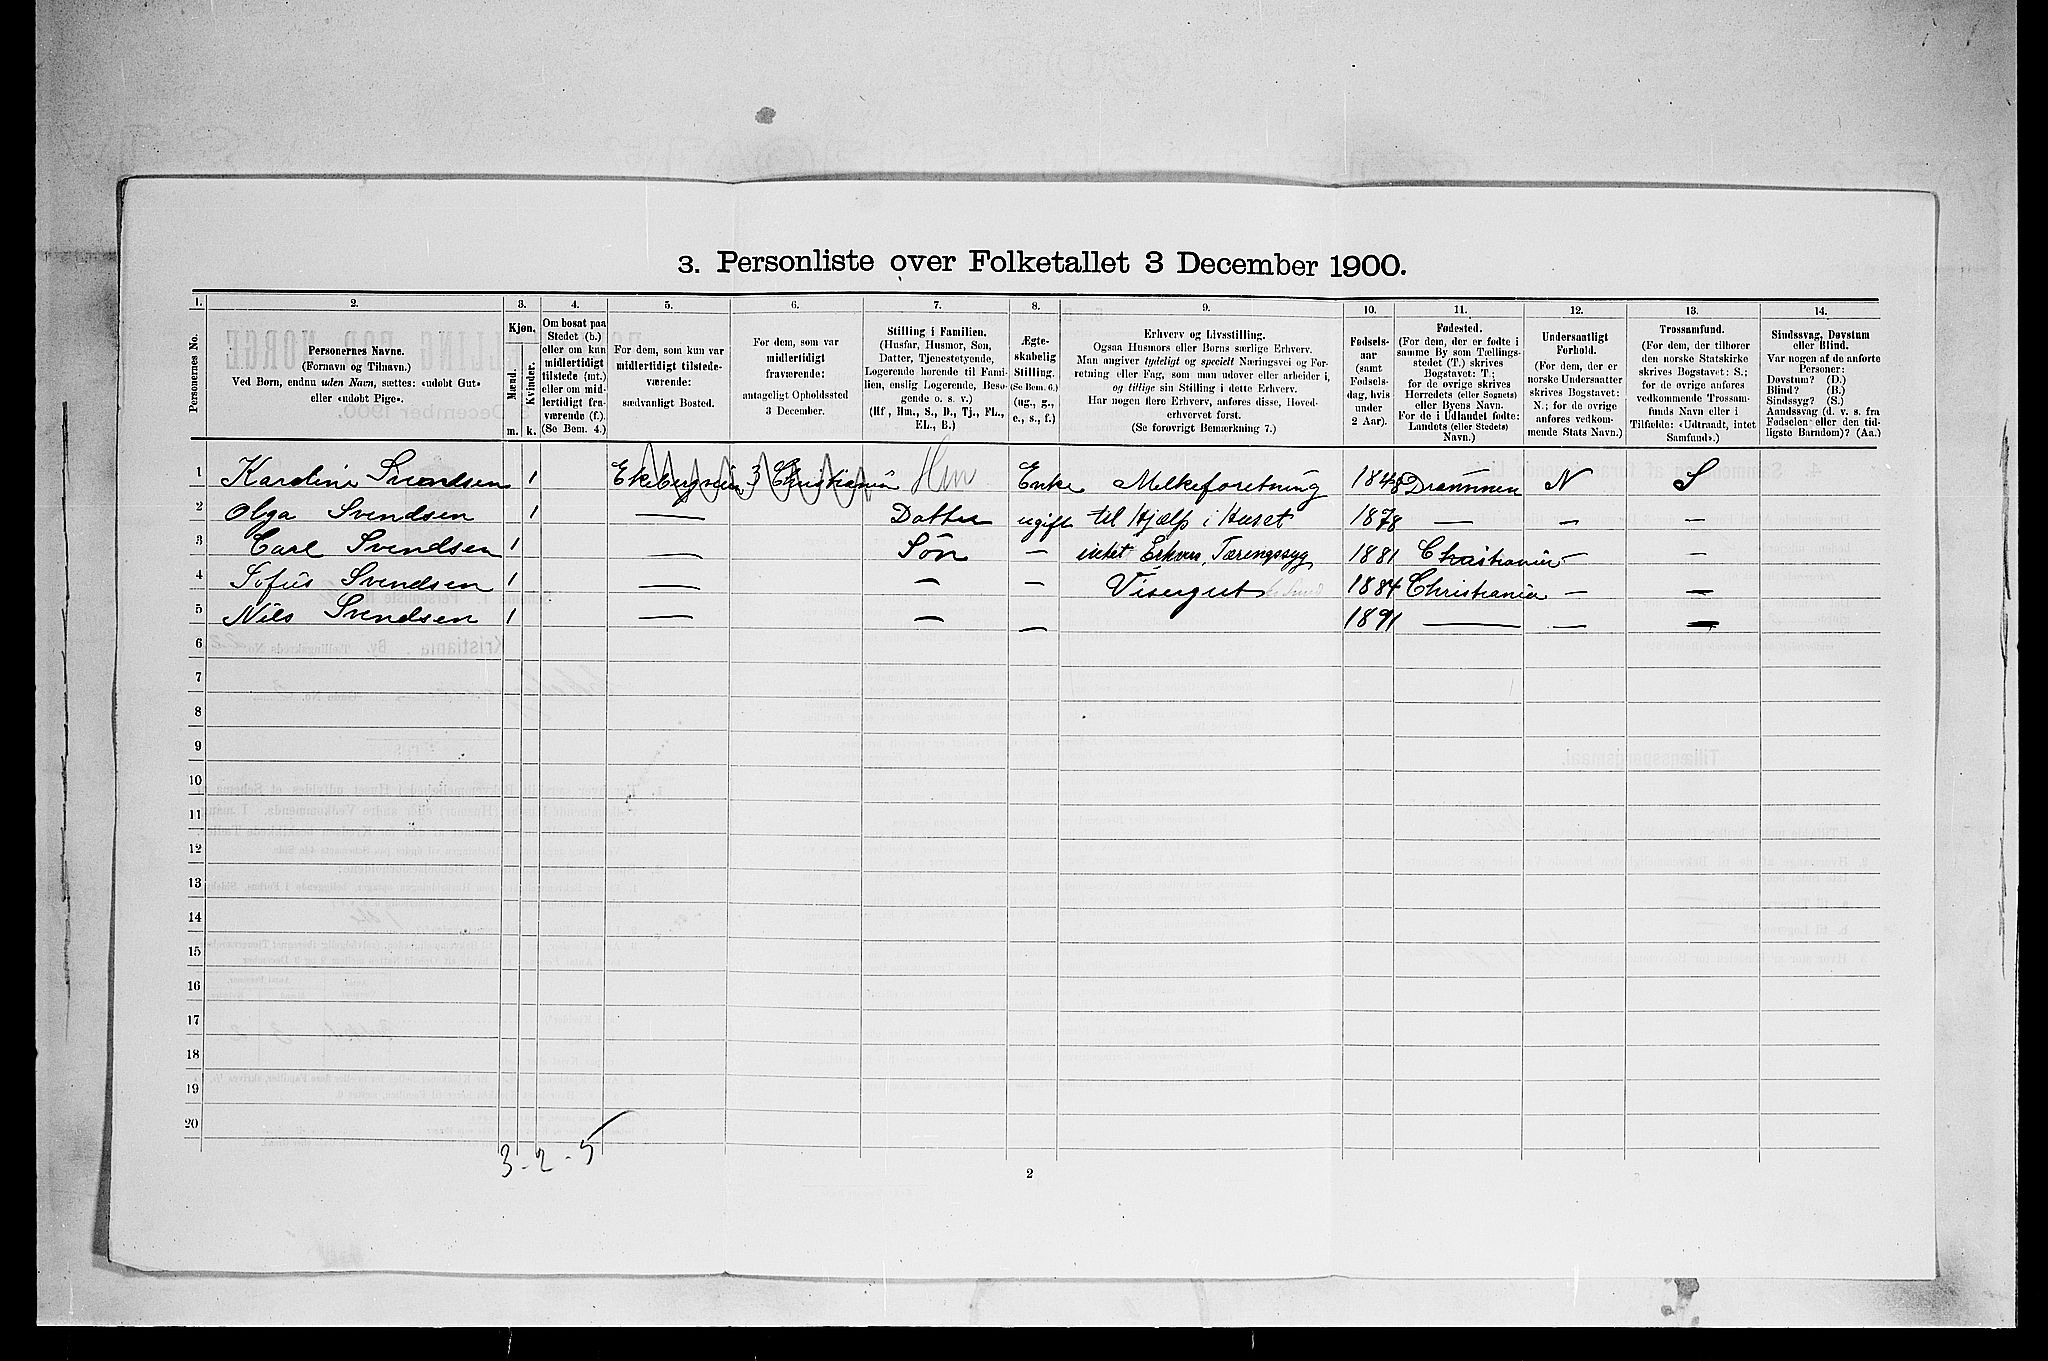 3. Personliste over Folketallet 3 December 1900.
1. 2. 3. 4. 5. 6. 7. 8. 9. 10. 11. 12. 13. 14.
Personernes No.
Personernes Navne.
(Fornavn og Tilnavn.)
Ved Børn, endnu uden Navn, sættes: «udøbt Gut»
eller «udøbt Pige».
Kjøn.
Mænd.
Kvinder.
m. k.
Om bosat paa
Stedet (b.)
eller om kun
midlertidigt
tilstede (mt.)
eller om mid-
lertidigt fra-
værende (f.).
(Se Bem. 4.)
For dem, som kun var
midlertidigt tilstede-
værende:
sædvanligt Bosted.
For dem, som var
midlertidigt
fraværende:
antageligt Opholdssted
3 December.
Stilling i Familien.
(Husfar, Husmor, Søn,
Datter, Tjenestetyende,
Logerende hørende til Fami-
lien, enslig Logerende, Besø-
gende o. s. v.)
(Hf, Hm., S., D., Tj., FL.,
EL., B.)
Ægte-
skabelig
Stilling.
(Se Bem. 6.)
(ug., g.,
e., s., f.)
Erhverv og Livsstilling.
Ogsaa Husmors eller Børns særlige Erhverv.
Man angiver tydeligt og specielt Næringsvei og For-
retning eller Fag, som man udøver eller arbeider i,
og tillige sin Stilling i dette Erhverv.
Har nogen flere Erhverv, anføres disse, Hoved-
erhvervet først.
(Se forøvrigt Bemærkning 7.)
Fødsels-
aar
(samt
Fødsels-
dag, hvis
under
2 Aar).
Fødested.
(For dem, der er fødte i
samme By som Tællings-
stedet (T.) skrives
Bogstavet: T.;
for de øvrige skrives
Herredets (eller Sognets)
eller Byens Navn.
For de i Udlandet fødte:
Landets (eller Stedets)
Navn.)
Undersaatligt
Forhold.
(For dem, der er
norske Undersaatter
skrives Bogstavet:
N.; for de øvrige
anføres vedkom-
mende Stats Navn.)
Trossamfund.
(For dem, der tilhører
den norske Statskirke
skrives Bogstavet: S.;
for de øvrige anføres
vedkommende Trossam-
funds Navn eller i
Tilfælde: «Udtraadt, intet
Samfund».)
Sindssvag, Døvstum
eller Blind.
Var nogen af de anførte
Personer:
Døvstum? (D.)
Blind? (B.)
Sindssyg? (S.)
Aandssvag (d. v. s. fra
Fødselen eller den tid-
ligste Barndom)? (Aa.)
1 Karoline Svendsen 1 Ekebergveien 3 Christiania Hm Enke Melkeforetning 1848 Drammen N S
2 Olga Svendsen 1 — Datter ugift til Hjælp i Huset 1878 — — —
3 Carl Svendsen 1 — Søn — intet Erhverv, Tæringssyg 1881 Christiania — —
4 Sofus Svendsen 1 — — — Visergut 1884 Christiania — —
5 Nils Svendsen 1 — — — 1891 — — —
6
7
8
9
10
11
12
13
14
15
16
17
18
19
20
3 - 2 - 5
2